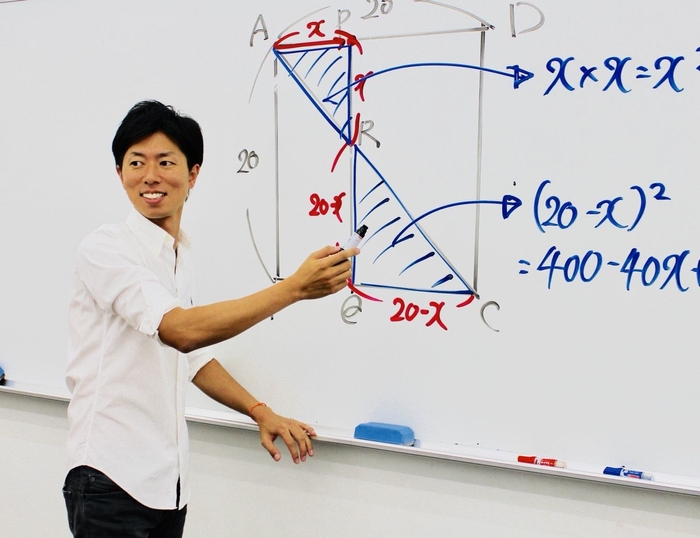 20
A x P D
x
x × x = x²
R
20
20-x
(20-x)²
=400-40x+
Q 20-x C